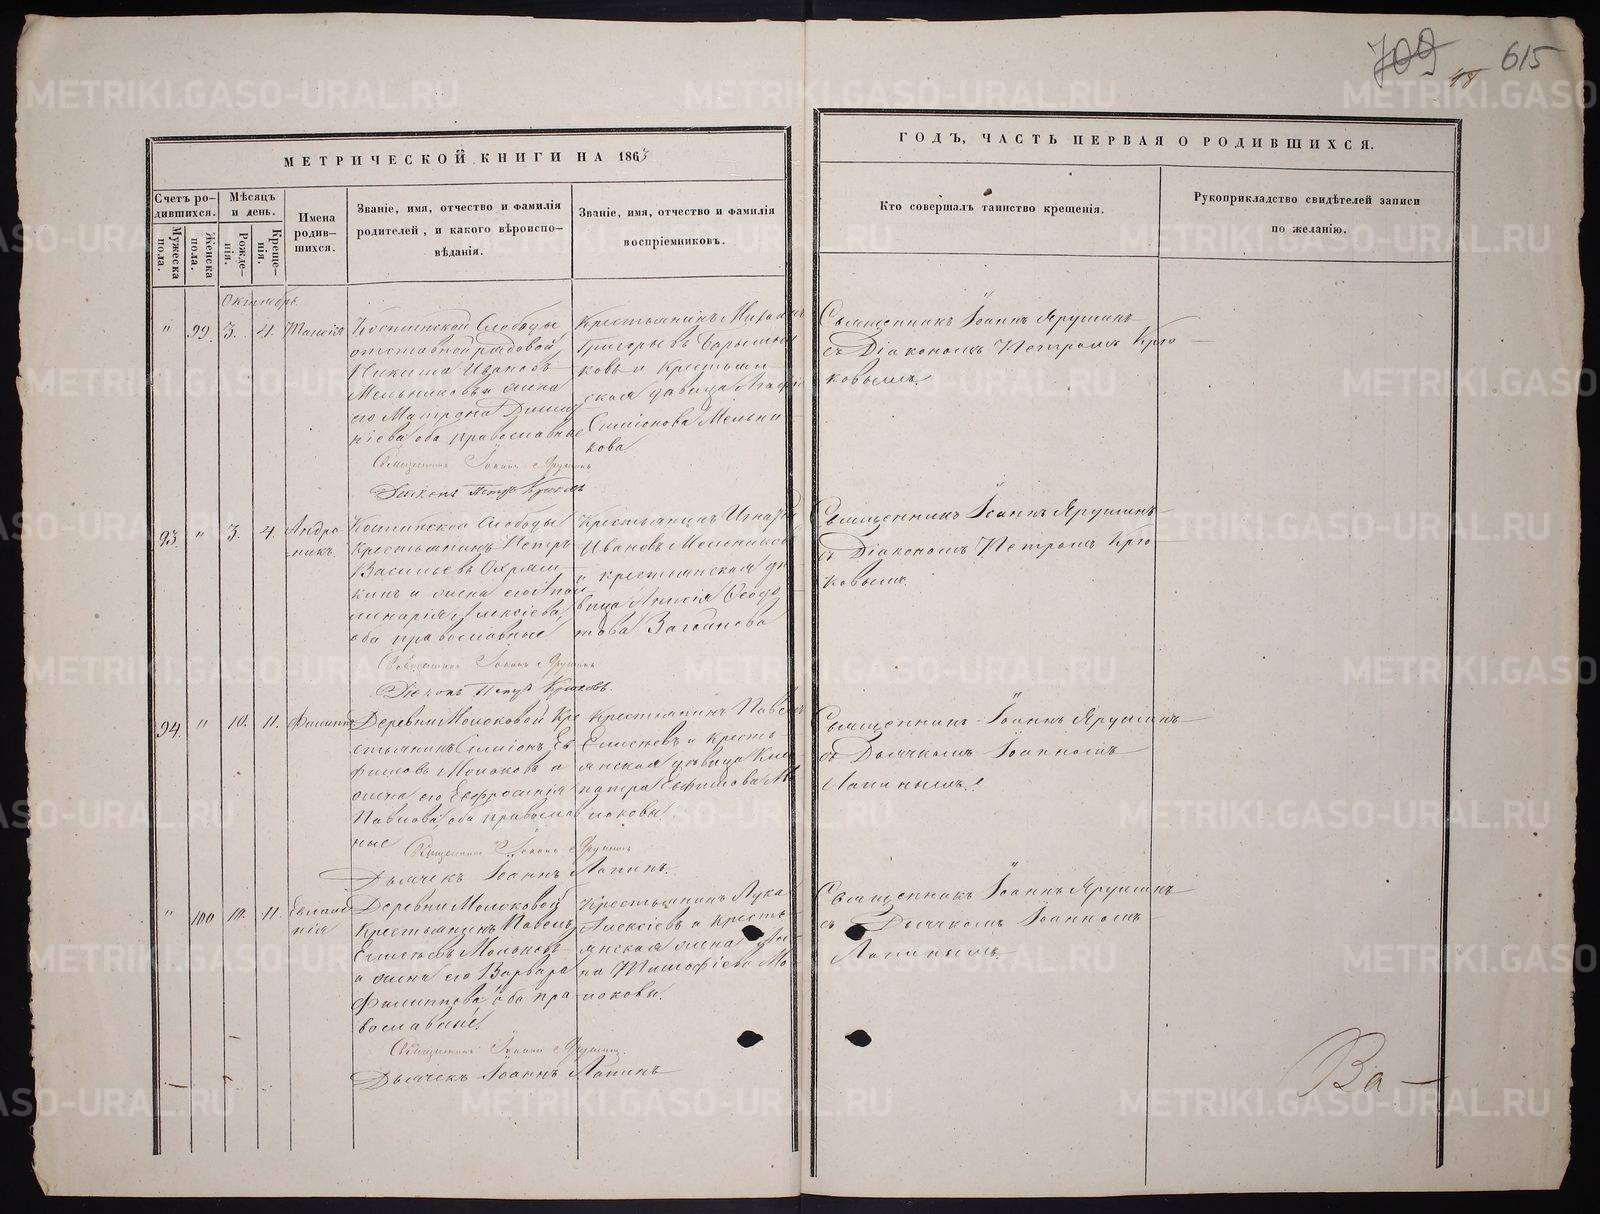 709
48
615
МЕТРИЧЕСКОЙ КНИГИ НА 1863
ГОДЪ, ЧАСТЬ ПЕРВАЯ О РОДИВШИХСЯ.
Счетъ родившихся.
Мужеска пола.
Женска пола.
Мѣсяцъ и день.
Рожденія.
Крещенія.
Имена родившихся.
Званіе, имя, отчество и фамилія
родителей, и какого вѣроиспо-
вѣданія.
Званіе, имя, отчество и фамилія
воспріемниковъ.
Кто совершалъ таинство крещенія.
Рукоприкладство свидѣтелей записи
по желанію.
Октябрь
" 99. 3. 4. Таисія
отставной рядовой
Никита Ивановъ
Мельниковъ и жена
его Матрона
оба православные
Священникъ Іоаннъ Ярушинъ
Діаконъ Петръ Крюковъ
Крестьянинъ Михаилъ
Григорьевъ
ковъ и крестьян
ская дѣвица Агафія
Симіонова Мельни
кова
Священникъ Іоаннъ Ярушинъ
съ Діакономъ Петромъ Крю
ковымъ.
93. " 3. 4. Андро
никъ.
Слободы
Крестьянинъ Петръ
Васильевъ
кинъ и жена его
Алексіева,
оба православные
Священникъ Іоаннъ Ярушинъ
Діаконъ Петръ Крюковъ.
Крестьянинъ Игнатій
Ивановъ Мельниковъ
и крестьянская дѣ
вица Анисія Ѳеодо
това
Священникъ Іоаннъ Ярушинъ
съ Діакономъ Петромъ Крю
ковымъ.
94. " 10. 11. Филиппъ
Деревни Молоковой Кре
стьянинъ Симіонъ Ев
фимовъ Молоковъ и
жена его Евфросинія
Павлова, оба православ
ные
Священникъ Іоаннъ Ярушинъ
Дьячекъ Іоаннъ Лапинъ.
Крестьянинъ Павелъ
Елисѣевъ и кресть
янская дѣвица Клео
патра Евфимова Мо
локовы
Священникъ Іоаннъ Ярушинъ
съ Дьячкомъ Іоанномъ
Лапинымъ.
" 100 10. 11. Евлам
пія
Деревни Молоковой
Крестьянинъ Павелъ
Елисѣевъ Молоковъ
и жена его Варвара
Филиппова, оба пра
вославные.
Священникъ Іоаннъ Ярушинъ.
Дьячекъ Іоаннъ Лапинъ
Крестьянинъ Лука
Алексіевъ и кресть
янская жена Ан
на Тимофіева Мо
локовы.
Священникъ Іоаннъ Ярушинъ
съ Дьячкомъ Іоанномъ
Лапинымъ.
Ва —
METRIKI.GASO-URAL.RU